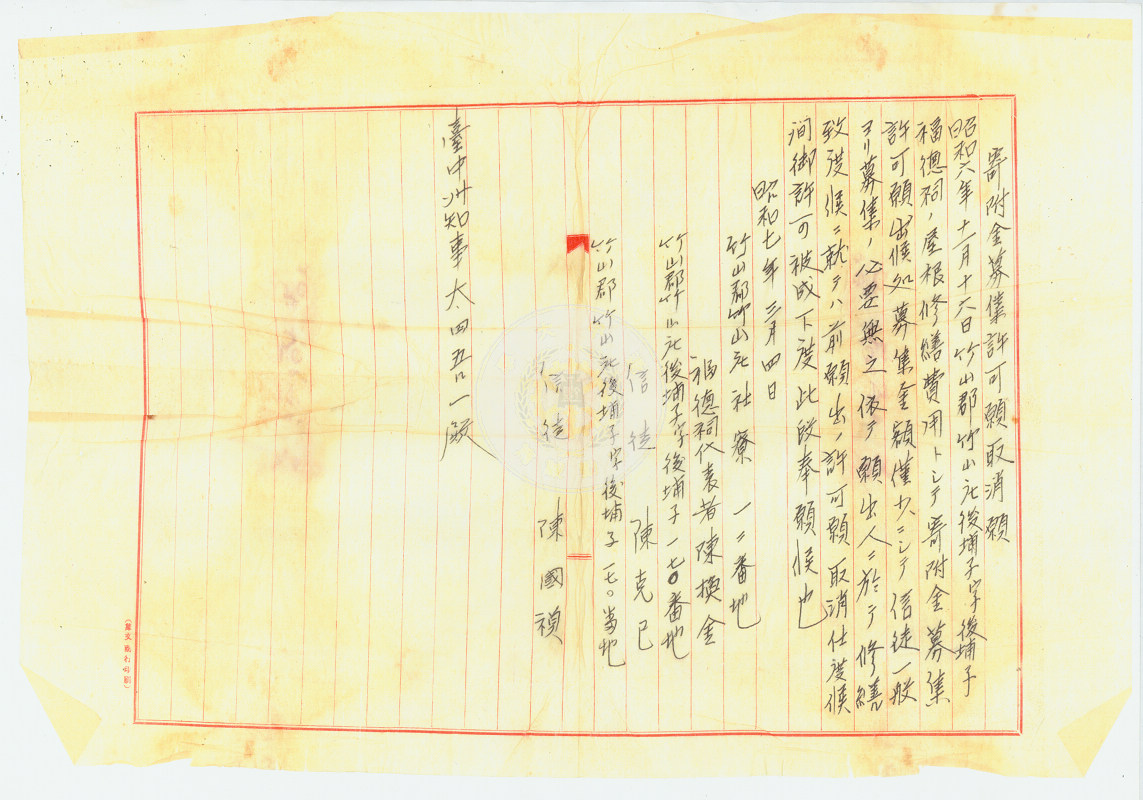 寄附金募集許可願取消願
昭和六年十一月十六日竹山郡竹山庄後埔子字後埔子
福德祠ノ屋根修繕費用トシテ寄附金募集
許可願出候処募集金額僅少ニシテ信徒一般
ヨリ募集ノ必要無之依テ願出人ニ於テ修繕
致度候ニ就テハ前願出ノ許可願取消仕度候
間御許可被成下度此段奉願候也
昭和七年三月四日
竹山郡竹山庄社寮一二番地
福德祠代表者陳換金
竹山郡竹山庄後埔子字後埔子一七〇番地
信徒 陳克己
竹山郡竹山庄後埔子字後埔子一七〇番地
信徒 陳國禎
臺中州知事太田吾一殿